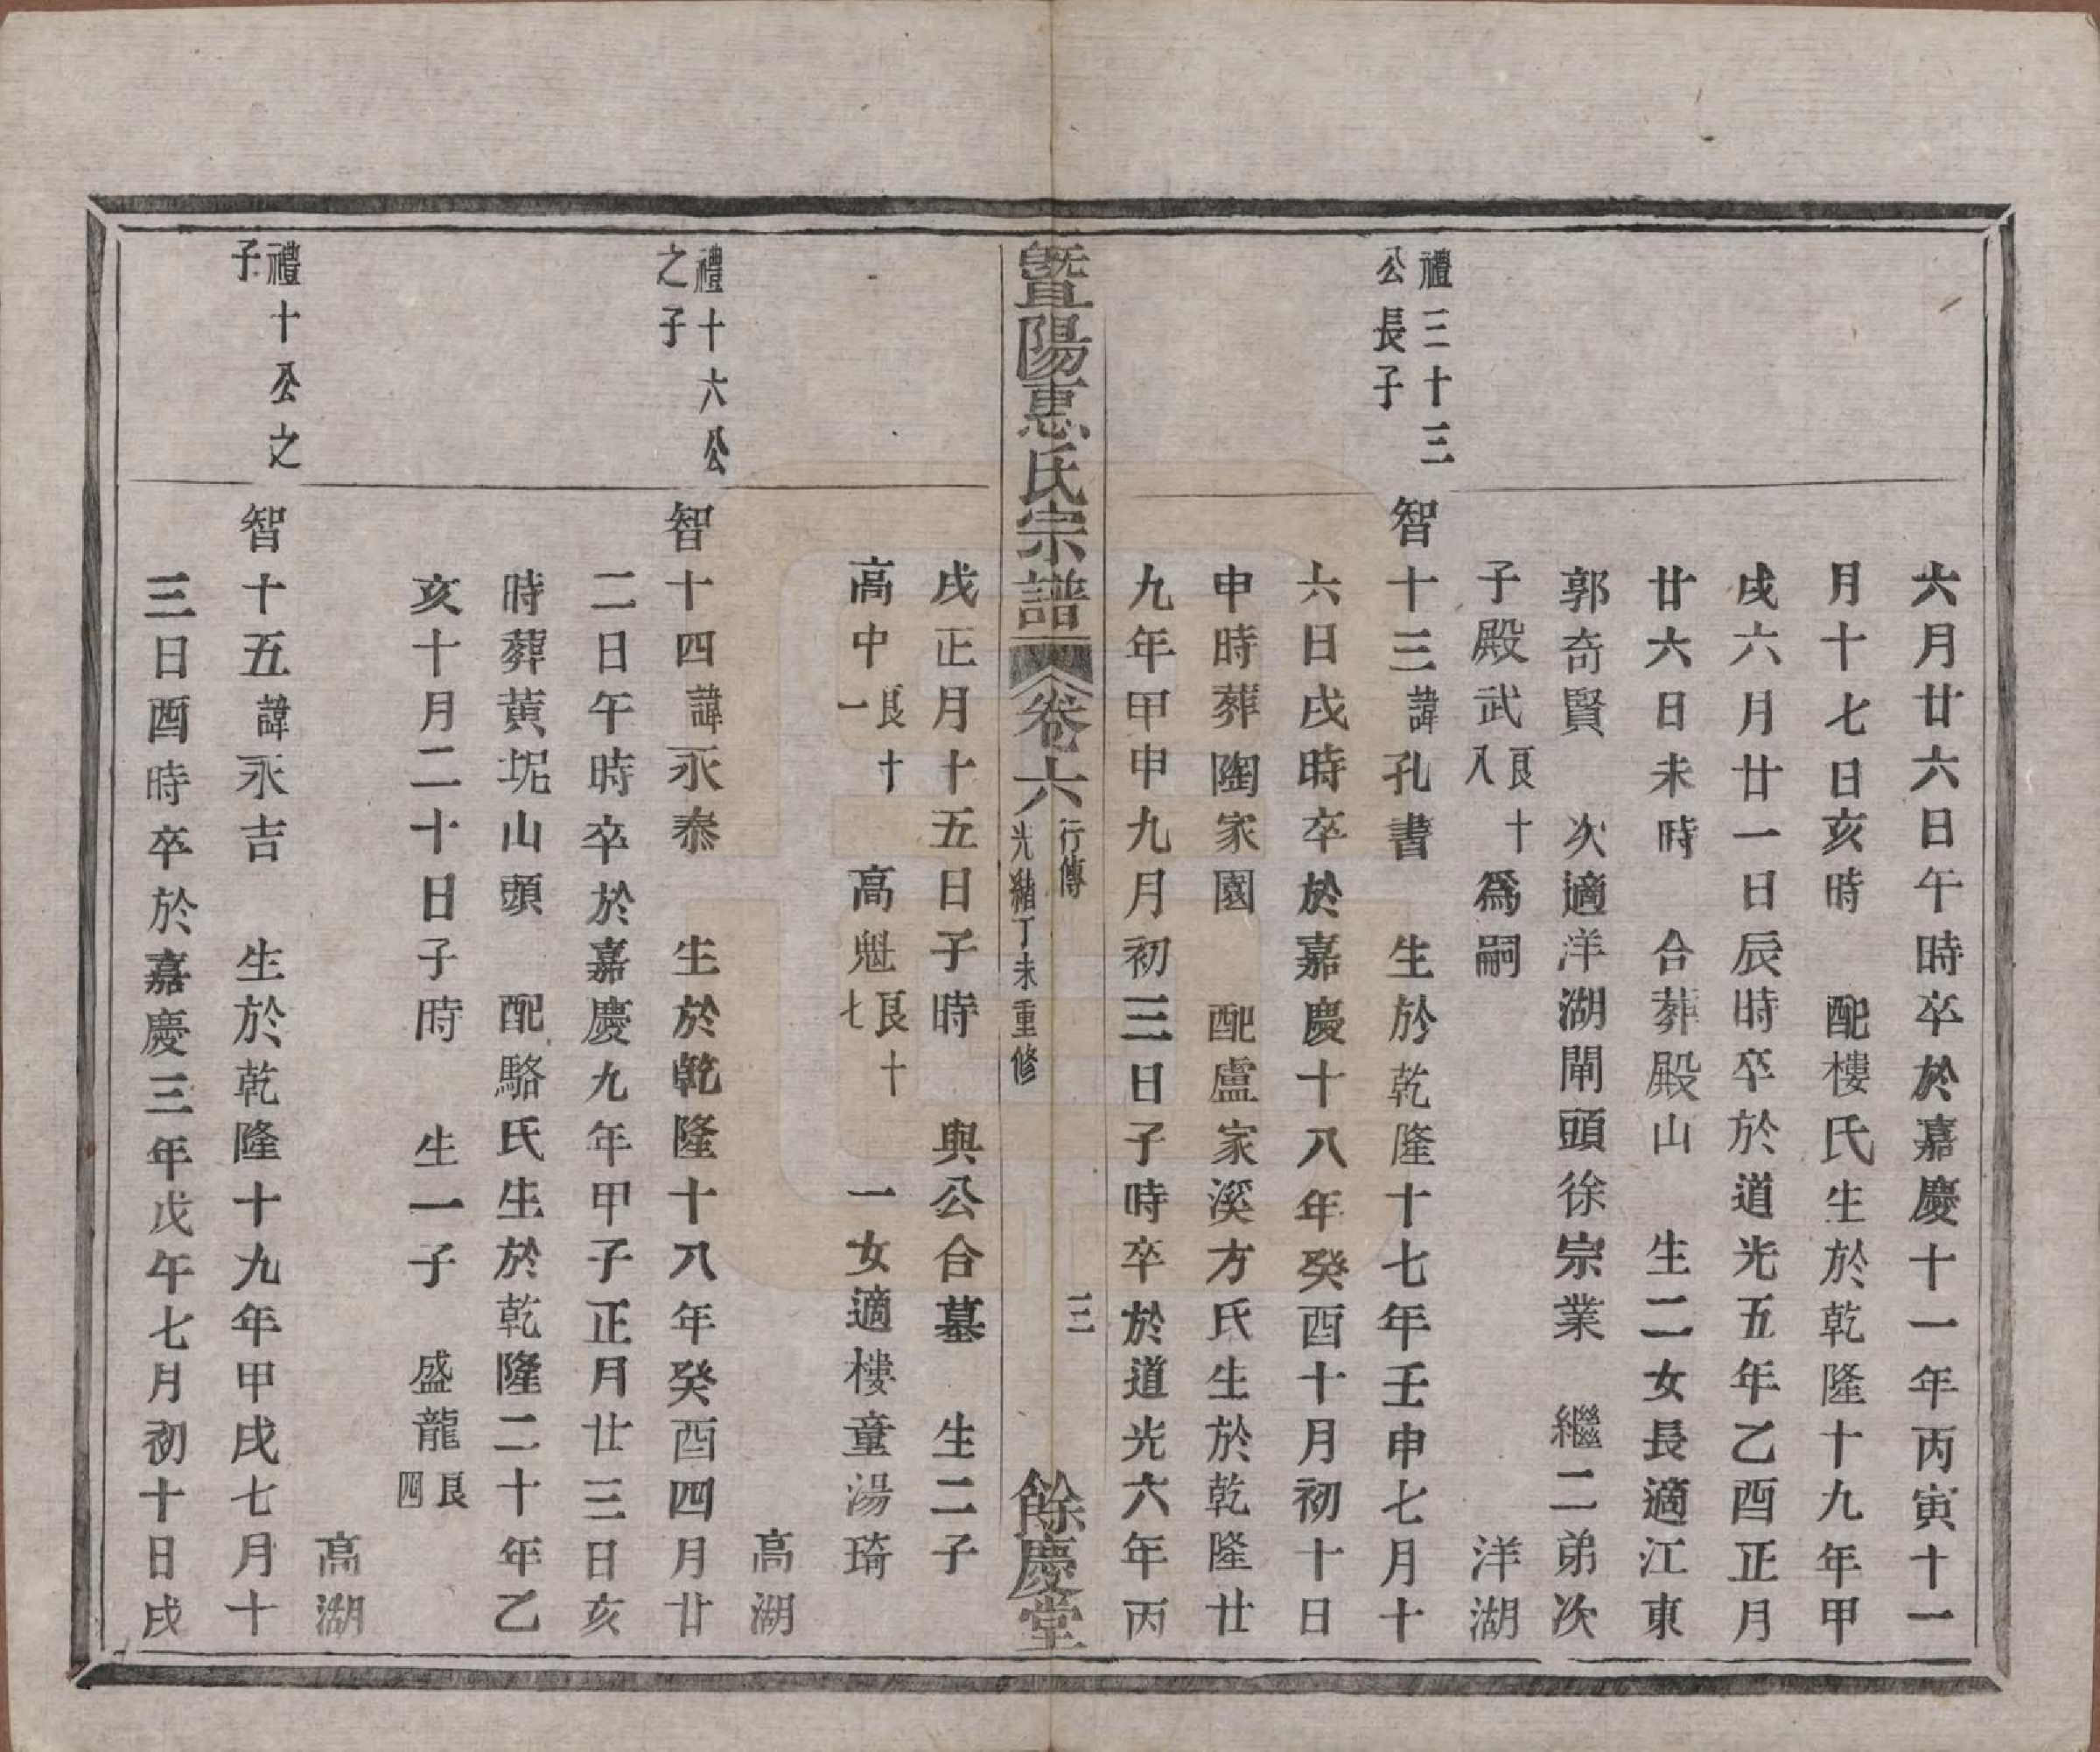 六月廿六日午時卒於嘉慶十一年丙寅十一
月十七日亥時　配樓氏生於乾隆十九年甲
戌六月廿一日辰時卒於道光五年乙酉正月
廿六日未時　合葬殿山　生二女長適江東
郭奇賢　次適洋湖閘頭徐宗業　繼二弟次
子殿武良十八為嗣　洋湖
禮三十三公長子
智十三諱孔書　生於乾隆十七年壬申七月十
六日戌時卒於嘉慶十八年癸酉十月初十日
申時葬陶家園　配盧家溪方氏生於乾隆廿
九年甲申九月初三日子時卒於道光六年丙
暨陽惠氏宗譜　卷六　行傳　光緒丁未重修　三　餘慶堂
戌正月十五日子時　與公合墓　生二子
高中良十一　高魁良十七　一女適樓童湯琦
高湖
禮十六公之子
智十四諱永泰　生於乾隆十八年癸酉四月廿
二日午時卒於嘉慶九年甲子正月廿三日亥
時葬黃坭山頭　配駱氏生於乾隆二十年乙
亥十月二十日子時　生一子　盛龍良四
高湖
禮十公之子
智十五諱永吉　生於乾隆十九年甲戌七月十
三日酉時卒於嘉慶三年戊午七月初十日戌